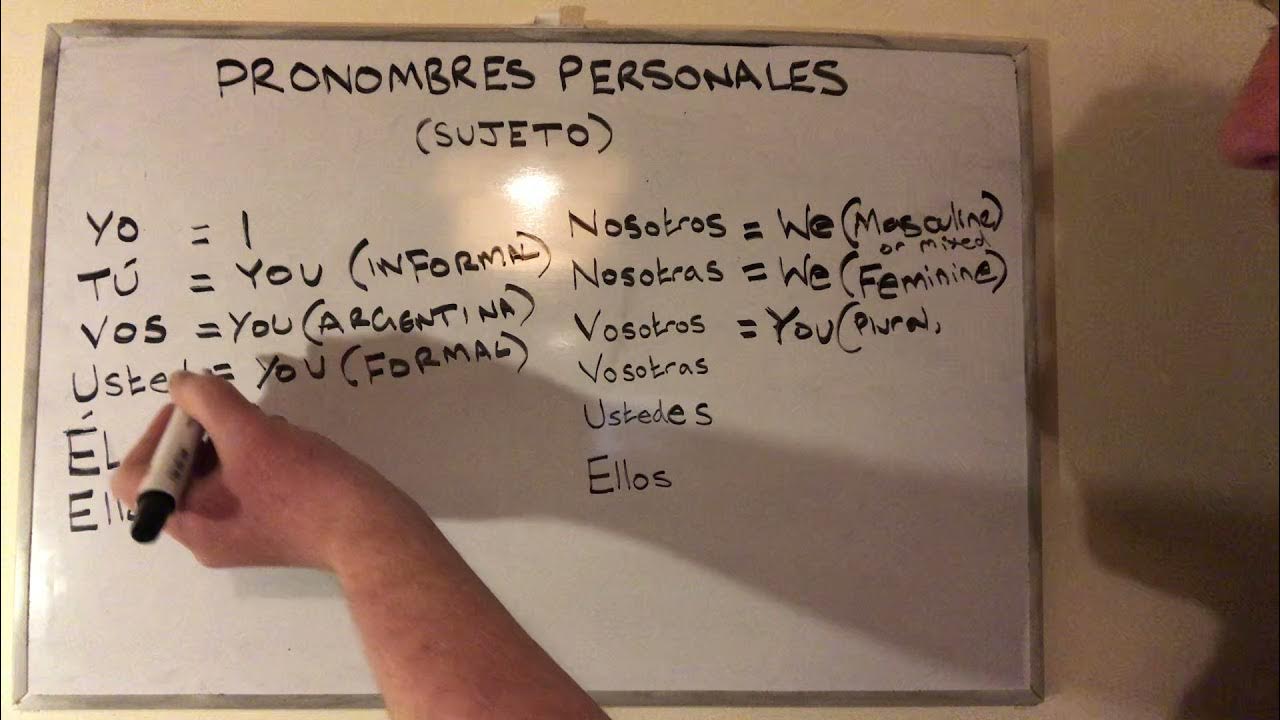 PRONOMBRES PERSONALES
(SUJETO)
YO = I
TÚ = YOU (INFORMAL)
VOS = YOU (ARGENTINA)
Usted = YOU (FORMAL)
ÉL
Nosotros = We (Masculine)
or mixed
Nosotras = We (Feminine)
Vosotros = YOU (
Vosotras
Ustedes
Ellos